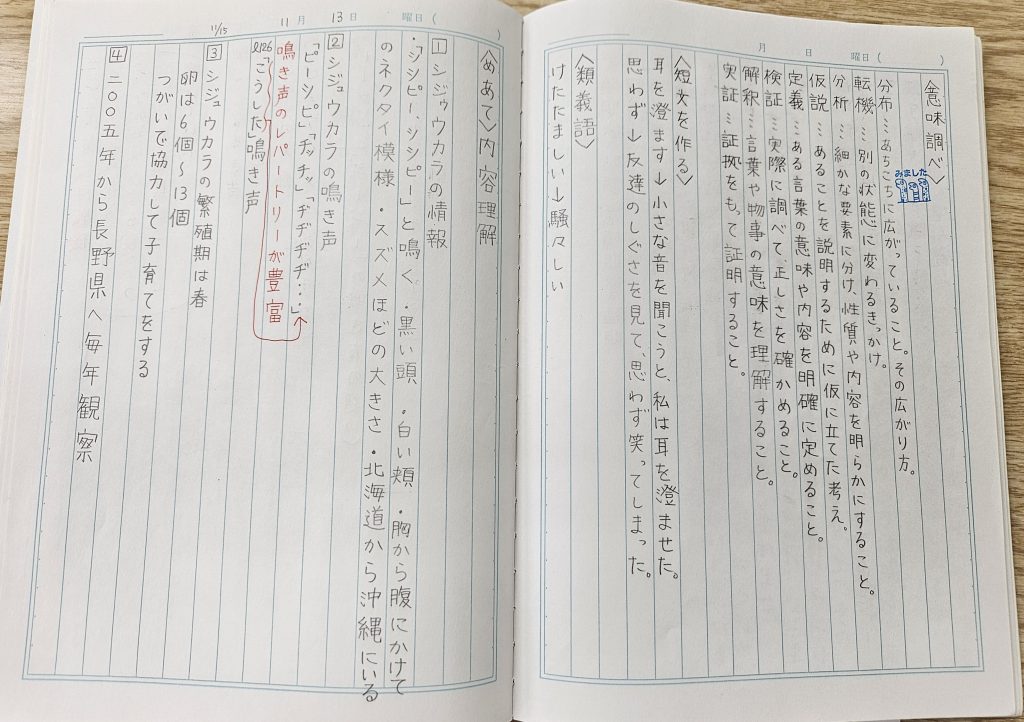 月　日　曜日（　　）
〈意味調べ〉
みました
分布…あちこちに広がっていること。その広がり方。
転機…別の状態に変わるきっかけ。
分析…細かな要素に分け、性質や内容を明らかにすること。
仮説…あることを説明するために仮に立てた考え。
定義…ある言葉の意味や内容を明確に定めること。
検証…実際に調べて、正しさを確かめること。
解釈…言葉や物事の意味を理解すること。
実証…証拠をもって証明すること。
〈短文を作る〉
耳を澄ます→小さな音を聞こうと、私は耳を澄ませた。
思わず→友達のしぐさを見て、思わず笑ってしまった。
〈類義語〉
けたたましい→騒々しい
11月13日　曜日（　　）
〈めあて〉内容理解
1 シジュウカラの情報
・「シシピー、シシピー」と鳴く・黒い頭・白い頬・胸から腹にかけて
のネクタイ模様・スズメほどの大きさ・北海道から沖縄にいる
2 シジュウカラの鳴き声
「ピーシピ」「ヂッヂッ」「ヂヂヂヂ…」
鳴き声のレパートリーが豊富
P126
「こうした」鳴き声
11/15
3 シジュウカラの繁殖期は春
卵は6個〜13個
つがいで協力して子育てをする
4 二〇〇五年から長野県へ毎年観察